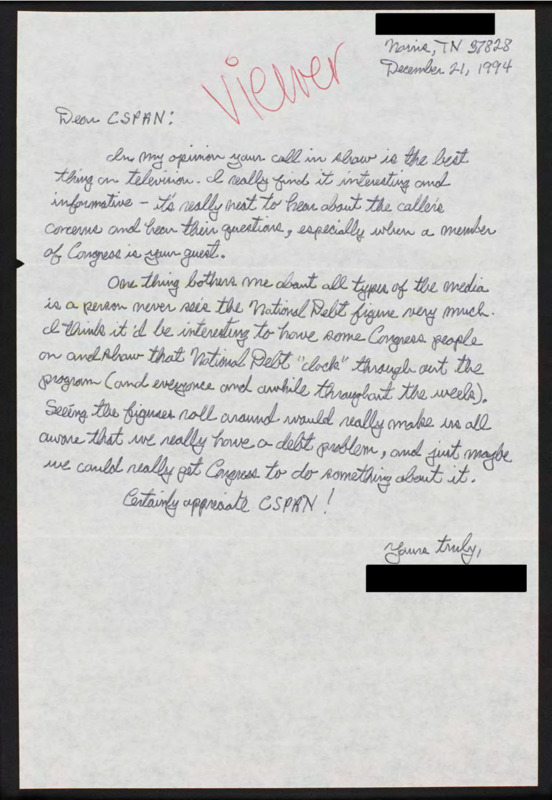 Norris, TN 37828
December 21, 1994
viewer
Dear CSPAN:
In my opinion your call in show is the best
thing on television. I really find it interesting and
informative - it's really neat to hear about the caller's
concerns and hear their questions, especially when a member
of Congress is your guest.
One thing bothers me about all types of the media
is a person never sees the National Debt figure very much.
I think it'd be interesting to have some Congress people
on and show that National Debt "clock" through out the
program (and everyonce and awhile throughout the week).
Seeing the figures roll around would really make us all
aware that we really have a debt problem, and just maybe
we could really get Congress to do something about it.
Certainly appreciate CSPAN!
Yours truly,